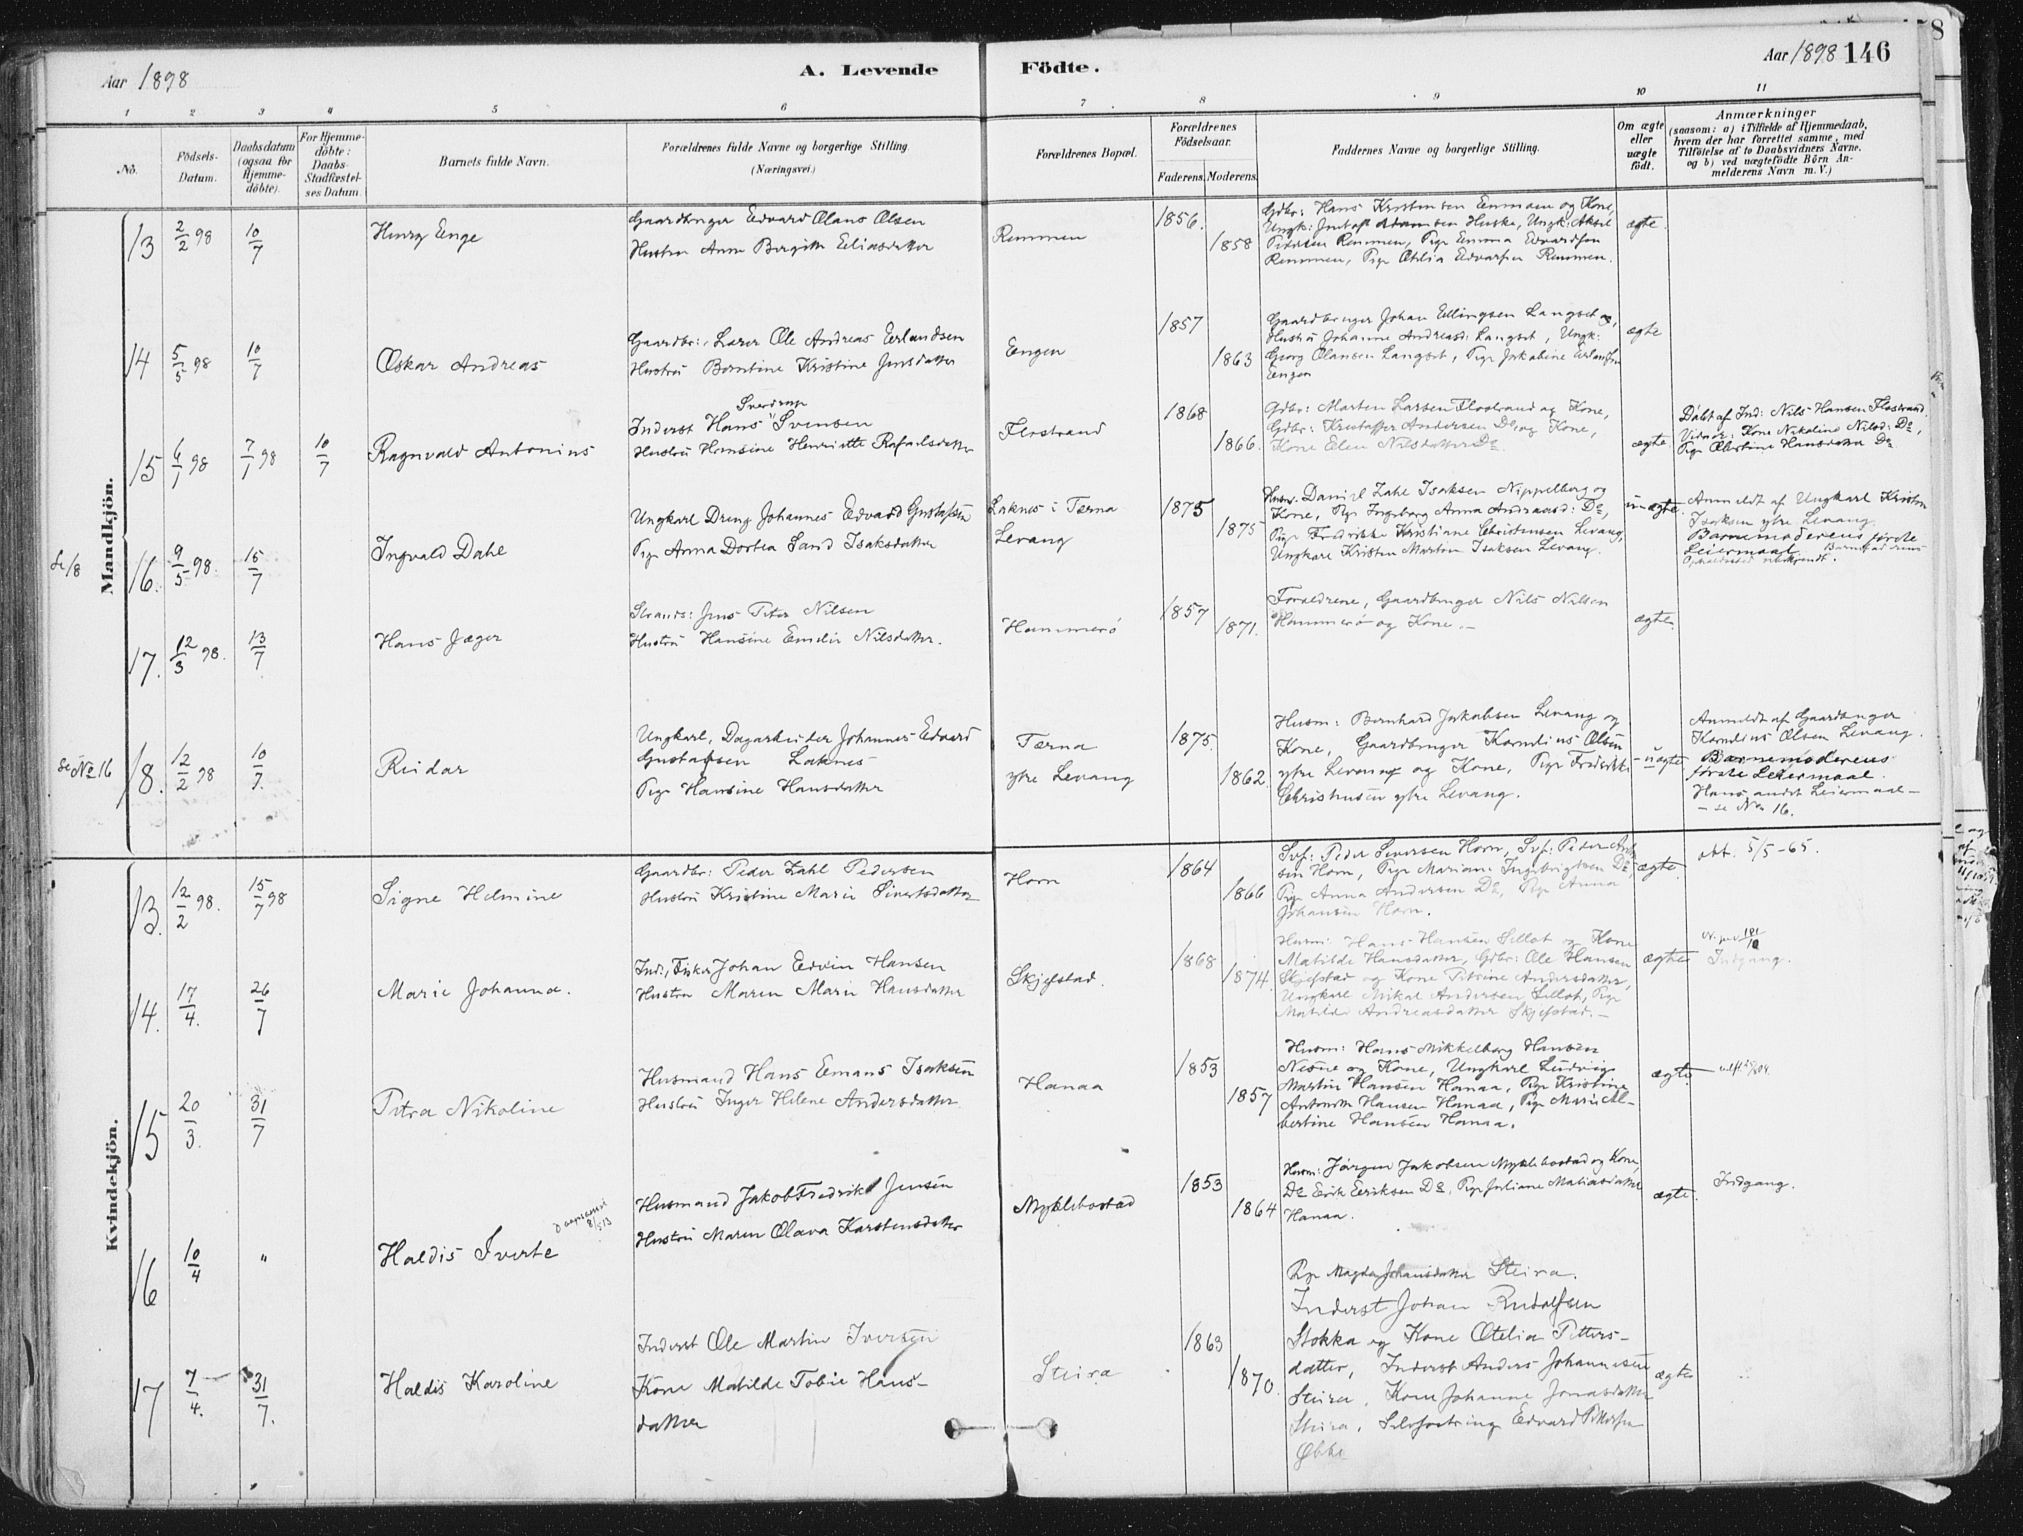 Aar 1898
A. Levende Födte.
Aar 1898 146
1 2 3 4 5 6 7 8 9 10 11
No.
Födsels-
Datum.
Daabsdatum
(ogsaa for
Hjemme-
döbte).
For Hjemme-
döbte:
Daabs-
Stadfæstel-
ses Datum.
Barnets fulde Navn.
Forældrenes fulde Navne og borgerlige Stilling
(Næringsvei.)
Forældrenes Bopæl.
Forældrenes
Födselsaar.
Faderens. Moderens.
Faddernes Navne og borgerlige Stilling.
Om ægte
eller
uægte
födt.
Anmærkninger
(saasom: a) i Tilfælde af Hjemmedaab,
hvem der har forrettet samme, med
Tilföielse af to Daabsvidners Navne.
og b) ved uægtefödte Börn An-
melderens Navn m. V.)
Mandkjön.
13 2/2 98 10/7 Henry Enge
Gaardbruger Edvard Olaus Olsen
Hustru Anne Bergitte Eliasdatter
Remmen
1856. 1858
Gdbr: Hans Kristensen Enmoen og Kone,
Ungk: Adamsen Huske, Ungk: Aksel
Pedersen Remmen, Pige Emma Edvardsen
Remmen, Pige Otelia Edvarsen Remmen.
ægte.
14 5/5 98 10/7 Oskar Andreas
Gaardbr:, Lærer Ole Andreas Erlandsen
Hustru Berntine Kristine Jensdatter
Engen
1857 1863
Gaardbruger Johan Ellingsen Langset og
Hustru Johanne Andreasd: Langset, Ungk:
Georg Olausen Langset, Pige Jakobine Erlandsen
Engen
ægte
15 6/7 98 7/7 98 10/7 Ragnvald Antonius
Sverdrup
Inderst Hans " Svensen
Hustru Hansine Henriette Rafaelsdatter
Flostrand
1868 1866.
Gdbr: Morten Larsen Flostrand og Kone,
Gdbr: Kristoffer Andersen Do og Kone,
Kone Elen Nilsdatter Do.
ægte
Döbt af Ind: Nils Hansen Flostrand,
Vidner: Kone Nikoline Nilsd: Do,
Pige Olestine Hansdatter Do
Se 18
16. 9/5 98. 15/7 Ingvald Dahl
Ungkarl Dreng Johannes Edvard Gustafsen
Pige Anna Dortea Sand Isaksdatter
Laknes i Tærna
Levang
1875 1875
Husm. Daniel Zahl Isaksen Nippelberg og
Kone, Pige Ingeborg Anna Andreasd: Do,
Pige Fredrikke Kristiane Christensen Levang,
Ungkare Kristen Martin Isaksen Levang.
uægte.
Anmeldt af Ungkarl Kristen
Isaksen ytre Levang
Barnemoderens förste
Leiermaal. Barnefaderens
Opholdssted ubekjendt.
17. 12/3 98. 13/7 Hans Jæger
Strands: Jens Peter Nilsen
Hustru Hansine Emelie Nilsdatter.
Hammerö
1857 1871.
Forældrene, Gaardbruger Nils Nilsen
Hammerö og Kone.
ægte.
Se No 16
18. 12/2 98 10/7. Reidar
Ungkarl, Dagarbeider Johannes Edvard
Gustafsen Laknes
Pige Hansine Hansdatter
Tærna
ytre Levang
1875. 1862.
Husm: Bernhard Jakobsen Levang og
Kone, Gaardbruger Kornelius Olsen
ytre Levang og Kone, Pige Fredrikke
Christensen ytre Levang.
uægte
Anmeldt af Gaardbruger
Kornelius Olsen Levang.
Barnemoderens
förste Leiermaal.
Hans andet Leiermaal
- se No 16.
Kvindekjön.
13. 12/2 98. 15/7 98 Signe Helmine
Gaardbr: Peder Zahl Pedersen
Hustru Kristine Marie Sivertsdatter
Horn
1864 1866
Svf: Peder Sivertsen Horn, Svf: Peter
sen Horn, Pige Mariane Ingebrigtsen Do,
Pige Anna Andersen Do, Pige Anna
Johansen Horn.
ægte
att. 5/5-65.
14. 17/4. 26/7 Marie Johanna.
Ind:, Fisker Johan Edvin Hansen
Hustru Maren Marie Hansdatter
Skjefstad.
1868 1874.
Husm: Hans Hansen Sellot og Kone
Matilde Hansdatter, Gdbr: Ole Hansen
Skjefstad og Kone Petrine Andersdatter,
Ungkarl Mikal Andersen Sellot, Pige
Matilde Andreasdatter Skjefstad.
ægte
Indgang.
15 20/3. 31/7 Petra Nikoline
Husmand Hans Emans Isaksen
Hustru Inger Helene Andersdatter
Hanaa
1853 1857
Husm: Hans Mikkelborg Hansen
Nesne og Kone, Ungkarl Ludvig
Martin Hansen Hanaa, Pige Kristine
Antonette Hansen Hanaa, Pige Marie Al-
bertine Hansen Hanaa.
ægte
16 10/4 " Haldis Iverte
Husmand Jakob Fredrik Jensen
Hustru Maren Olava Karstensdatter
Myklebostad
1853 1864
Husm: Jörgen Jakobsen Myklebostad og Kone,
Do Eerik Eeriksen Do, Pige Juliane Matiasdatter
Hanaa.
Pige Magda Johansdatter Steira.
ægte.
Indgang.
17 7/4. 31/7. Haldis Karoline
Inderst Ole Martin Iversen
Kone Matilde Tobie Hans-
datter
Steira
1863 1870.
Inderst Johan Rudolfsen
Stokka og Kone Otelia Petters-
datter, Inderst Anders Johannesen
Steira, Kone Johanne Jonasdatter
Steira, Edvard
ægte